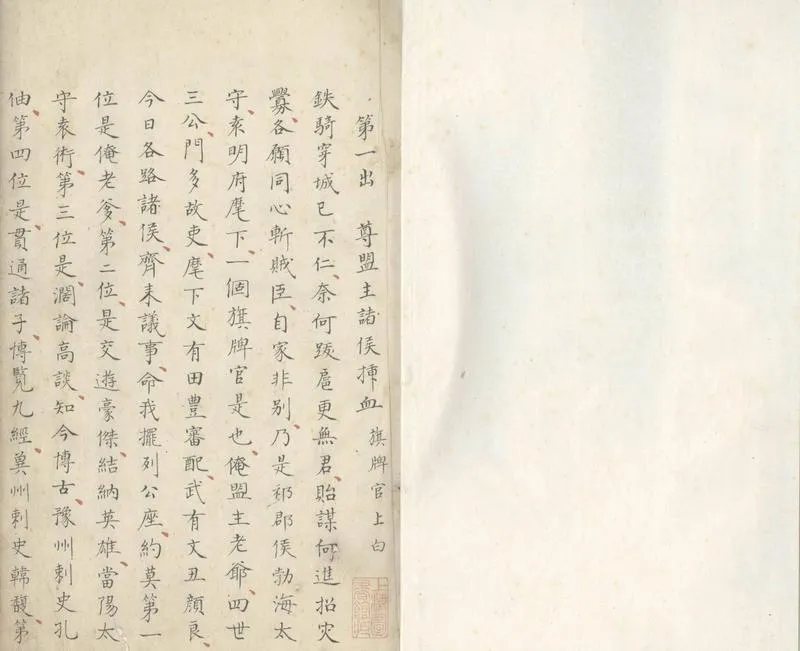 第一出　尊盟主諸侯揷血　旗牌官上白
鉄騎穿城已不仁奈何跋扈更無君貽謀何進招灾
釁各願同心斬賊臣自家非別乃是祁郡侯勃海太
守袁明府麾下一個旗牌官是也俺盟主老爺四世
三公門多故吏麾下文有田豊審配武有文丑顔良
今日各路諸侯齊来議事命我擺列公座約莫第一
位是俺老爹第二位是交遊豪傑結納英雄當陽太
守袁術第三位是濶論高談知今博古豫州刺史孔
伷第四位是貫通諸子博覧九經兾州刺史韓馥第